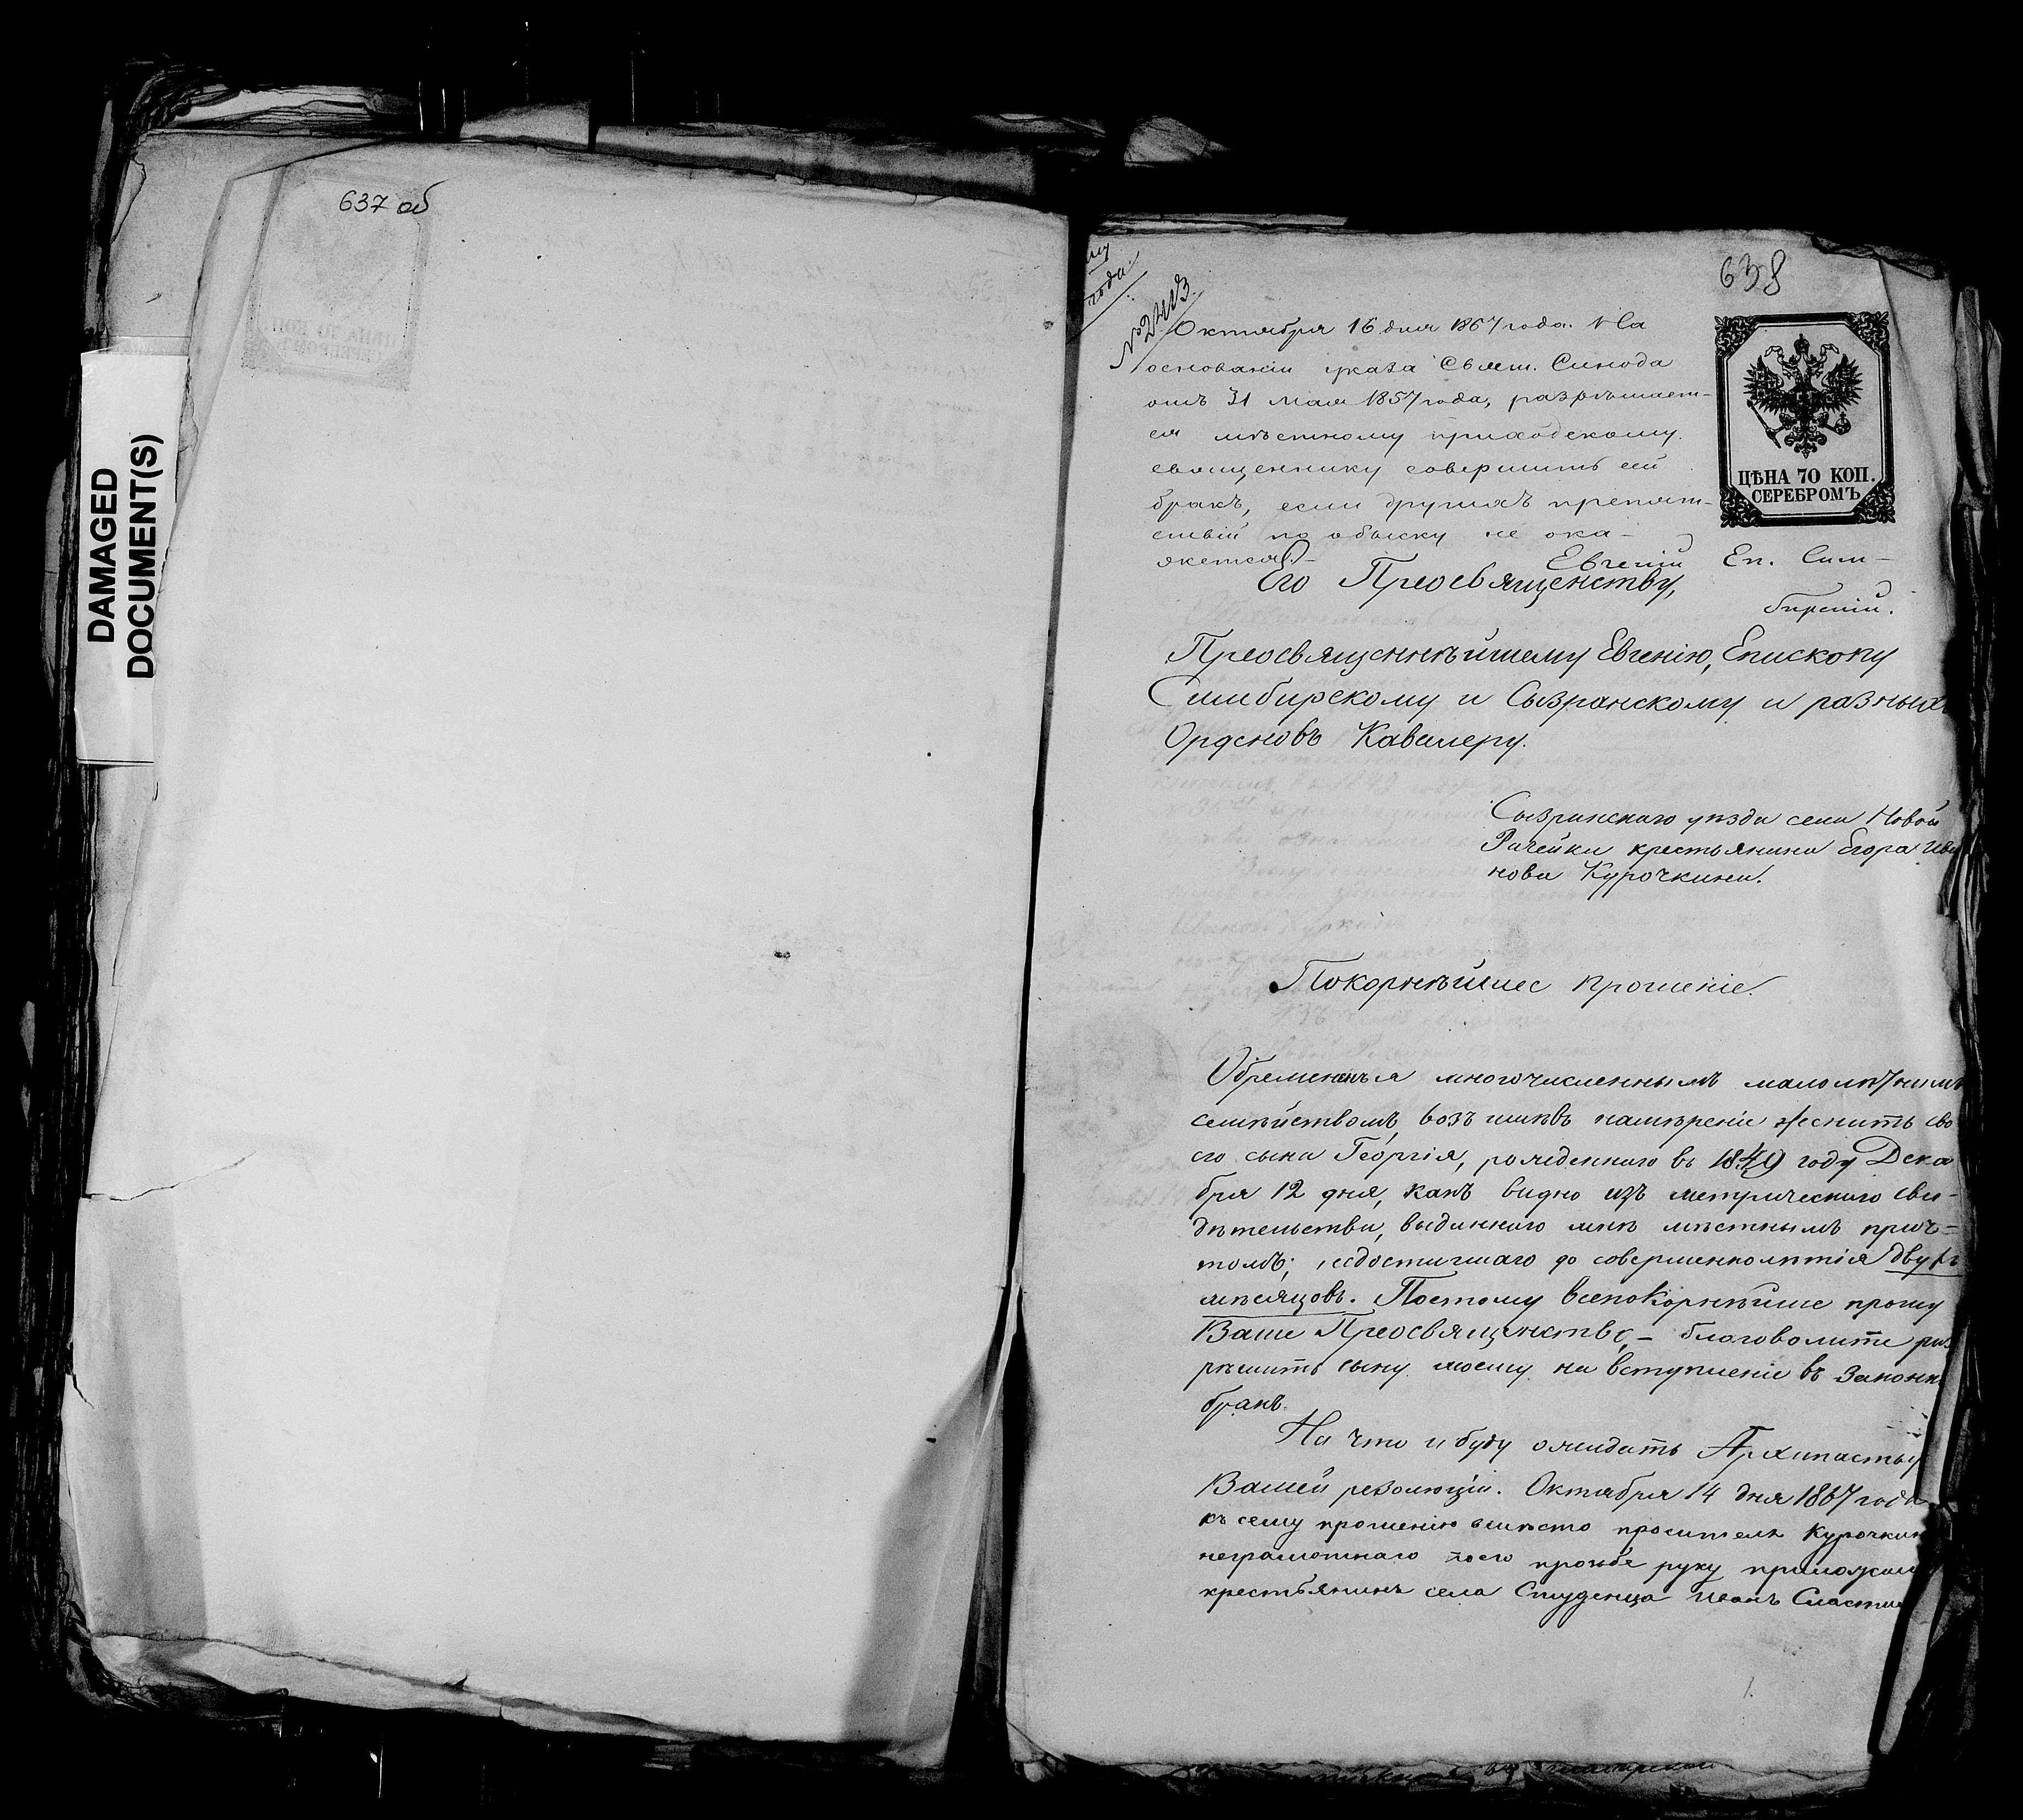 637 об
DAMAGED
DOCUMENT(S)
638
№ 2443
Октября 16 дня 1867 года. На
основаніи указа Свят. Синода
отъ 31 мая 1857 года, разрѣшает-
ся мѣстному приходскому
священнику совершить сей
бракъ, если другихъ препят-
ствій по обыску не ока-
жется. Евгеній Еп. Сим-
бирскій.
ЦѢНА 70 КОП.
СЕРЕБРОМЪ
Его Преосвященству,
Преосвященнѣйшему Евгенію, Епископу
Симбирскому и Сызранскому и разныхъ
Орденовъ Кавалеру.
Сызранскаго уѣзда села Новой
Рачейки крестьянина Егора Ива
нова Курочкина.
Покорнѣйшее прошеніе.
Обремененъ я многочисленнымъ малолѣтнимъ
семѣйствомъ, возъимѣвъ намѣреніе женить сво
его сына Георгія, рожденнаго въ 1849 году Дека
бря 12 дня, какъ видно изъ метрическаго сви-
дѣтельства, выданнаго мнѣ мѣстнымъ прич-
томъ; недостигшаго до совершеннолѣтія двухъ
мѣсяцовъ. Поетому всепокорнѣйше прошу
Ваше Преосвященство, - благоволите раз
рѣшить сыну моему на вступленіе въ законн
бракъ.
На что и буду ожидать Архипастыр
Вашей резолюціи. Октября 14 дня 1867 года
къ сему прошенію вмѣсто просителя Курочкин
неграмотнаго поего прозьбѣ руку приложил
крестьянинъ села Студенца Иванъ Сласти